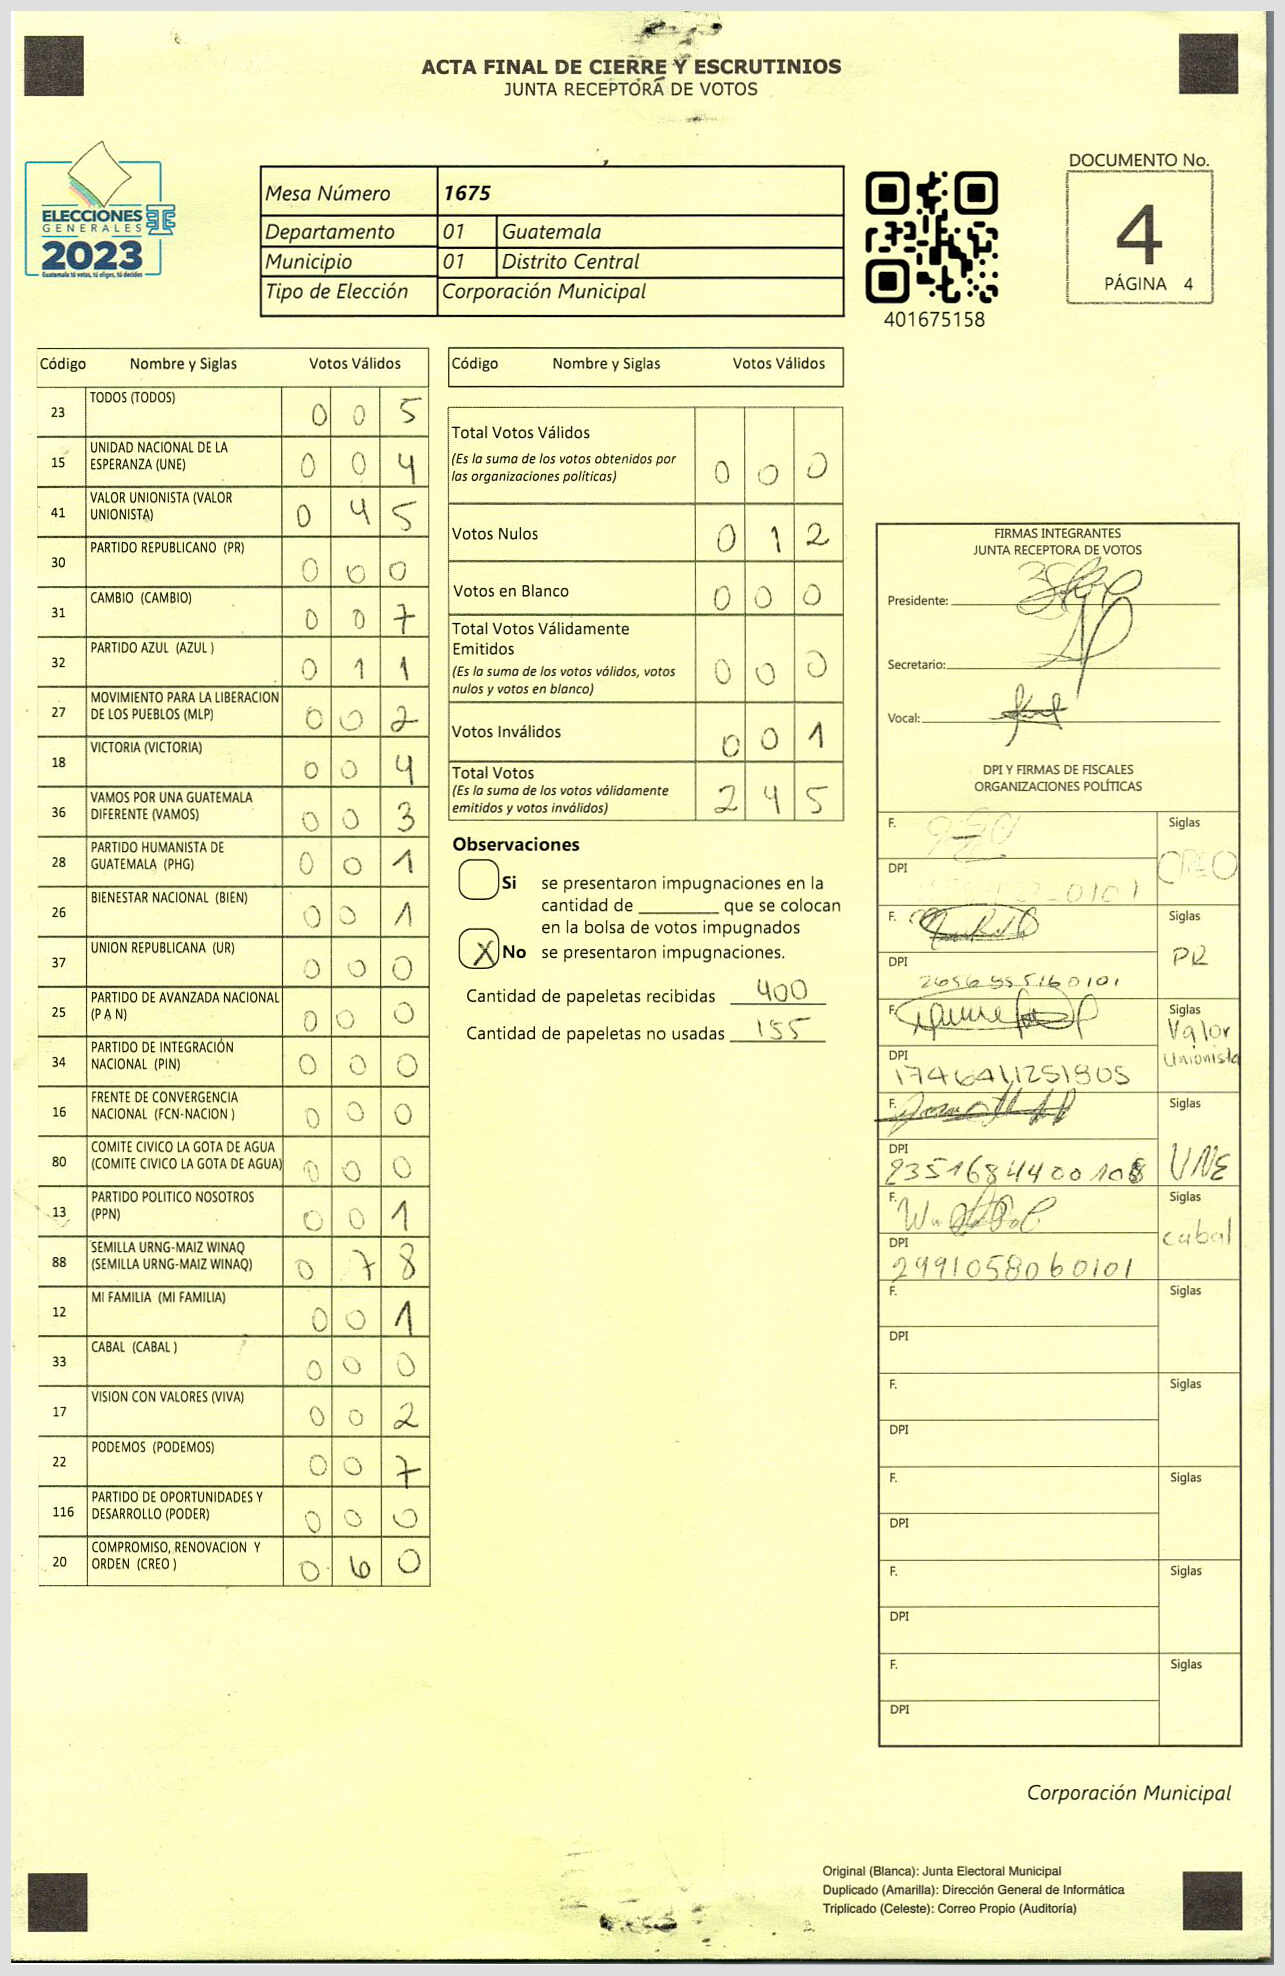 ACTA FINAL DE CIERRE Y ESCRUTINIOS
JUNTA RECEPTORA DE VOTOS
ELECCIONES
GENERALES
2023
Guatemala tú votas, tú eliges, tú decides
Mesa Número 1675
Departamento 01 Guatemala
Municipio 01 Distrito Central
Tipo de Elección Corporación Municipal
401675158
DOCUMENTO No.
4
PÁGINA 4
Código Nombre y Siglas Votos Válidos
23 TODOS (TODOS) 0 0 5
15 UNIDAD NACIONAL DE LA
ESPERANZA (UNE) 0 0 4
41 VALOR UNIONISTA (VALOR
UNIONISTA) 0 4 5
30 PARTIDO REPUBLICANO (PR) 0 0 0
31 CAMBIO (CAMBIO) 0 0 7
32 PARTIDO AZUL (AZUL ) 0 1 1
27 MOVIMIENTO PARA LA LIBERACION
DE LOS PUEBLOS (MLP) 0 0 2
18 VICTORIA (VICTORIA) 0 0 4
36 VAMOS POR UNA GUATEMALA
DIFERENTE (VAMOS) 0 0 3
28 PARTIDO HUMANISTA DE
GUATEMALA (PHG) 0 0 1
26 BIENESTAR NACIONAL (BIEN) 0 0 1
37 UNION REPUBLICANA (UR) 0 0 0
25 PARTIDO DE AVANZADA NACIONAL
(P A N) 0 0 0
34 PARTIDO DE INTEGRACIÓN
NACIONAL (PIN) 0 0 0
16 FRENTE DE CONVERGENCIA
NACIONAL (FCN-NACION ) 0 0 0
80 COMITE CIVICO LA GOTA DE AGUA
(COMITE CIVICO LA GOTA DE AGUA) 0 0 0
13 PARTIDO POLITICO NOSOTROS
(PPN) 0 0 1
88 SEMILLA URNG-MAIZ WINAQ
(SEMILLA URNG-MAIZ WINAQ) 0 7 8
12 MI FAMILIA (MI FAMILIA) 0 0 1
33 CABAL (CABAL ) 0 0 0
17 VISION CON VALORES (VIVA) 0 0 2
22 PODEMOS (PODEMOS) 0 0 7
116 PARTIDO DE OPORTUNIDADES Y
DESARROLLO (PODER) 0 0 0
20 COMPROMISO, RENOVACION Y
ORDEN (CREO ) 0 6 0
Código Nombre y Siglas Votos Válidos
Total Votos Válidos
(Es la suma de los votos obtenidos por
las organizaciones políticas) 0 0 0
Votos Nulos 0 1 2
Votos en Blanco 0 0 0
Total Votos Válidamente
Emitidos
(Es la suma de los votos válidos, votos
nulos y votos en blanco) 0 0 0
Votos Inválidos 0 0 1
Total Votos
(Es la suma de los votos válidamente
emitidos y votos inválidos) 2 4 5
Observaciones
Si se presentaron impugnaciones en la
cantidad de ________ que se colocan
en la bolsa de votos impugnados
X No se presentaron impugnaciones.
Cantidad de papeletas recibidas 400
Cantidad de papeletas no usadas 155
FIRMAS INTEGRANTES
JUNTA RECEPTORA DE VOTOS
Presidente:
Secretario:
Vocal:
DPI Y FIRMAS DE FISCALES
ORGANIZACIONES POLÍTICAS
F. Siglas
DPI CREO
F. Siglas
DPI PR
F. Siglas
Valor
Unionista
DPI
F. Siglas
DPI UNE
F. Siglas
cabal
DPI
2991058060101
F. Siglas
DPI
F. Siglas
DPI
F. Siglas
DPI
F. Siglas
DPI
F. Siglas
DPI
Corporación Municipal
Original (Blanca): Junta Electoral Municipal
Duplicado (Amarilla): Dirección General de Informática
Triplicado (Celeste): Correo Propio (Auditoría)